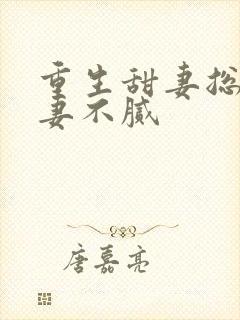 重生甜妻总
妻不腻
唐嘉亮